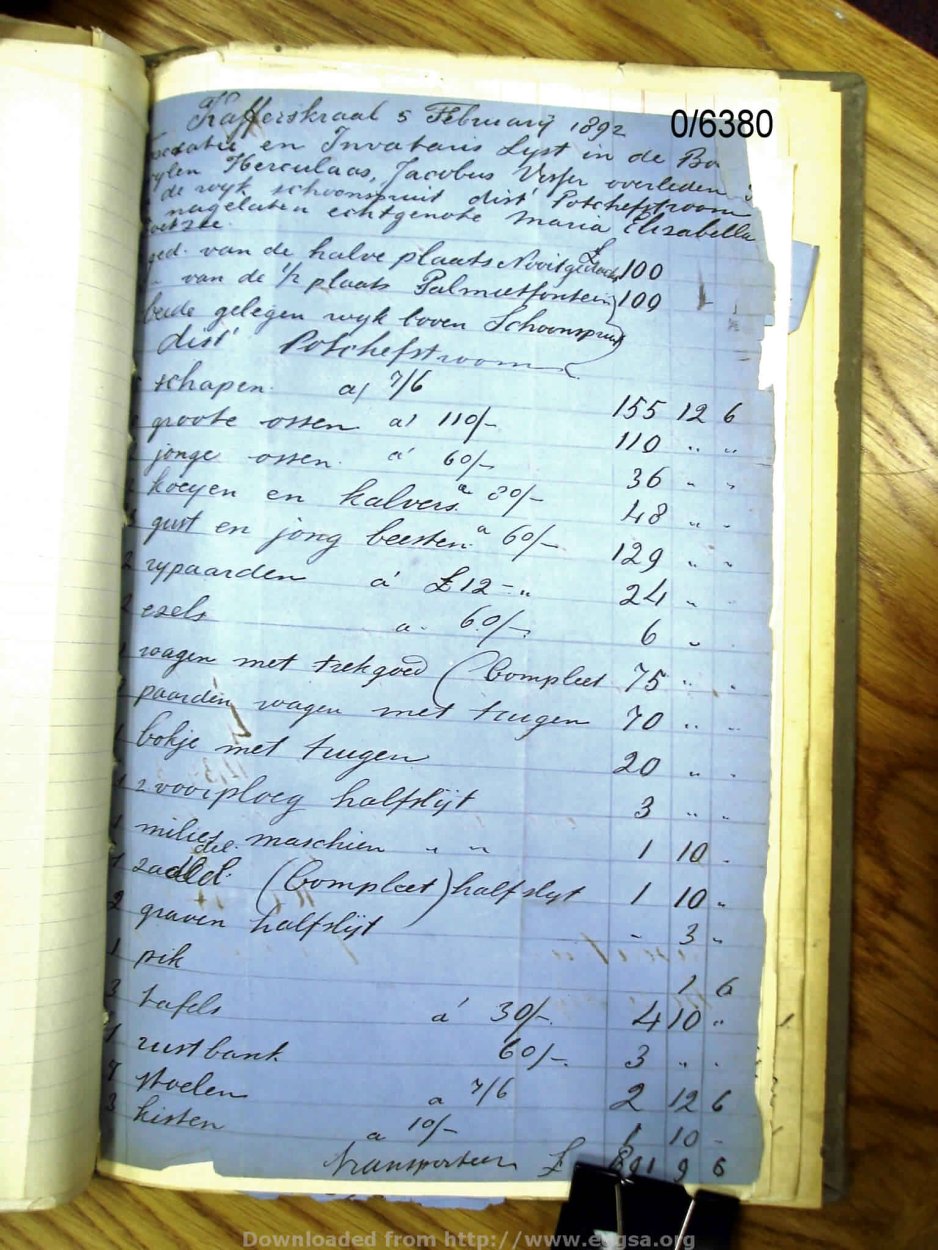 Kafferskraal 5 Februarij 1892 0/6380
en Invataus Lyst in de
Herculaas, Jacobus overleden
de wyk schoonspruit dist Potchefstroom
nagelaten echtgenote Maria Elizabella
ged. van de halve plaats Nooitgedacht £100
" van de ½ plaats Palmietfontein) 100 " "
beide gelegen wyk boven Schoonspruit)
dist Potchefstroom
schapen a/ 7/6 155 12 6
groote ossen a' 110/- 110 " "
jonge ossen a' 60/- 36 " "
koeyen en kalvers a 80/- 48 " "
gust en jong beesten a 60/- 129 " "
2 rypaarden a' £12 - " 24 " "
2 ezels a 60/- 6 "
1 wagen met trekgoed (Compleet 75 " "
1 paarden wagen met tuigen 70 " "
1 bokje met tuigen 20 " "
1 2 voorploeg halfslijt 3 " "
1 milies maschien " " 1 10 -
1 zadel (Compleet) halfslyt 1 10 "
2 graven halfslijt - 3 "
1 pik 1 6
3 tafels a' 30/- 4 10 "
1 rustbank 60/- 3 " "
7 stoelen a 7/6 2 12 6
3 kisten a 10/- 1 10 -
Transporteer £ 9 6
Downloaded from http://www.eggsa.org